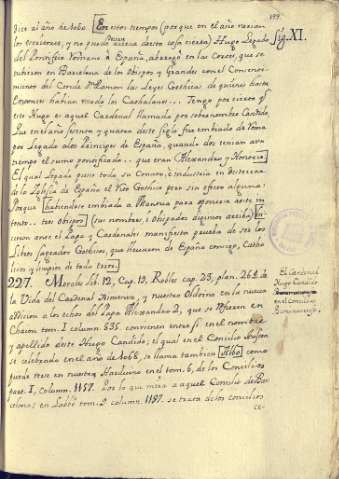 dice al año de 1060. En estos tiempos (porque en el año varian
los Escritores, y no puede averse desto cosa cierta) Hugo Legado
del Pontifice Romano à España, abrogò en las Cortes, que se
tubieron en Barcelona de los Obispos y Grandes con el Consenti-
miento del Conde D. Ramon las Leyes Gothicas de quienes hasta
entonces habian usado los Cathalanes... Tengo por cierto q.
este Hugo es aquel Cardenal llamado por sobrenombre Candido,
que en el año sesenta y quatro deste siglo fue embiado de Roma
por Legado a los Principes de España, quando dos tenian a un
tiempo el sumo pontificado... que eran Alexandro y Honorio
El qual Legado puso toda su Conato, è industria en desterrar
de la Iglesia de España el Rito Gothico pero sin efecto alguno:
Porque habiendose embiado a Mantua para oponerse a este in-
tento... tres Obispos (sus nombres, i Obispados digimos arriba) hi-
cieron ante el Papa y Cardenales manifesta prueba de ser los
Libros sagrados Gothicos, que llevaron de España consigo, Catho-
licos y limpios de todo error.
227. Morales lib. 12, Cap. 13, Robles cap. 23, plan. 268 de
la Vida del Cardenal Ximenez, y nuestro Oldoino en la nueva
addicion a los echos del Papa Alexandro 2, que se refieren en
Chacon tom. I column. 835. convienen entre si en el nombre
y apellido deste Hugo Candido; el qual en el Concilio Auson
se celebrado en el año de 1068, se llama tambien Albo como
puede verse en nuestro Harduino en el tom. 6, de los Concilios
part. I, column. 1157. Por lo que mira a aquel Concilio de Bar-
celona; en Labbè tom. 9 column. 1187. se trata de los Concilios
199.
Sig. XI.
El Cardenal
Hugo Candido
en el Concilio